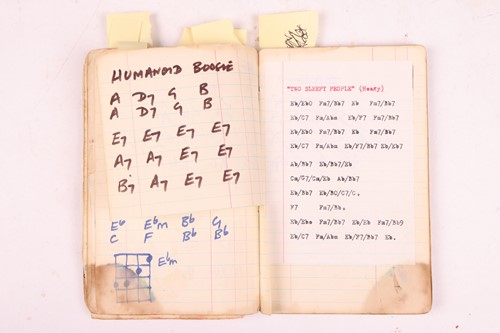 HUMANOID BOOGIE
A D7 G B
A D7 G B
E7 E7 E7 E7
A7 A7 E7 E7
B7 A7 E7 E7
Eb Ebm Bb G
C F Bb Bb
Ebm
"TWO SLEEPY PEOPLE" (Hoagy)
Eb/EbO Fm7/Bb7 Eb Fm7/Bb7
Eb/C7 Fm/Abm Eb/F7 Fm7/Bb7
Eb/EbO Fm7/Bb7 Eb Fm7/Bb7
Eb/C7 Fm/Abm Eb/F7/Bb7 Eb/Eb7
Ab/Bb7 Eb/Bb7/Eb
Cm/G7/Cm/Eb Ab/Bb7
Eb/Bb7 Eb/BO/C7/C.
F7 Fm7/Bb.
Fm7/Bb7 Eb/Eb Fm7/Bb9
Eb/C7 Fm/Abm Eb/F7/Bb7 Eb.